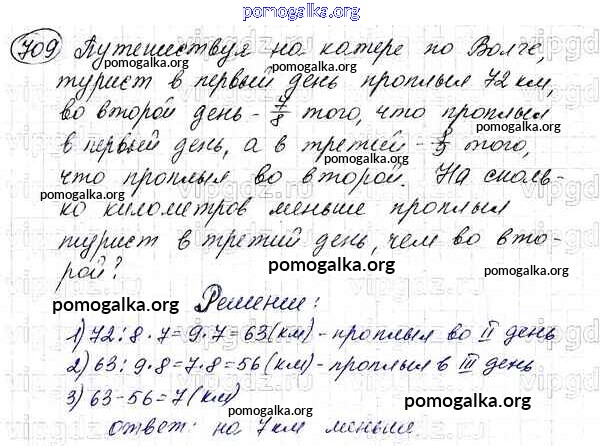 pomogalka.org
709 Путешествуя на катере по Волге,
турист в первый день проплыл 72 км,
во второй день - 7/8 того, что проплыл
в первый день, а в третий - 8/9 того,
pomogalka.org
что проплыл во второй. На сколь-
ко километров меньше проплыл
турист в третий день, чем во вто-
рой?
pomogalka.org
pomogalka.org
Решение:
1) 72:8·7=9·7=63(км)-проплыл во II день
2) 63:9·8=7·8=56(км)-проплыл в III день
3) 63-56=7(км)
pomogalka.org
pomogalka.org
ответ: на 7км меньше.